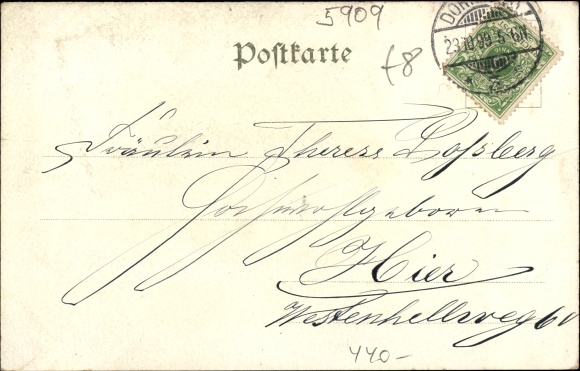 5909
Postkarte
f8
23.10.99. 5-6N
Fräulein Therese Loßberg
Hochwohlgeboren
Hier
Westenhellweg 60
440-